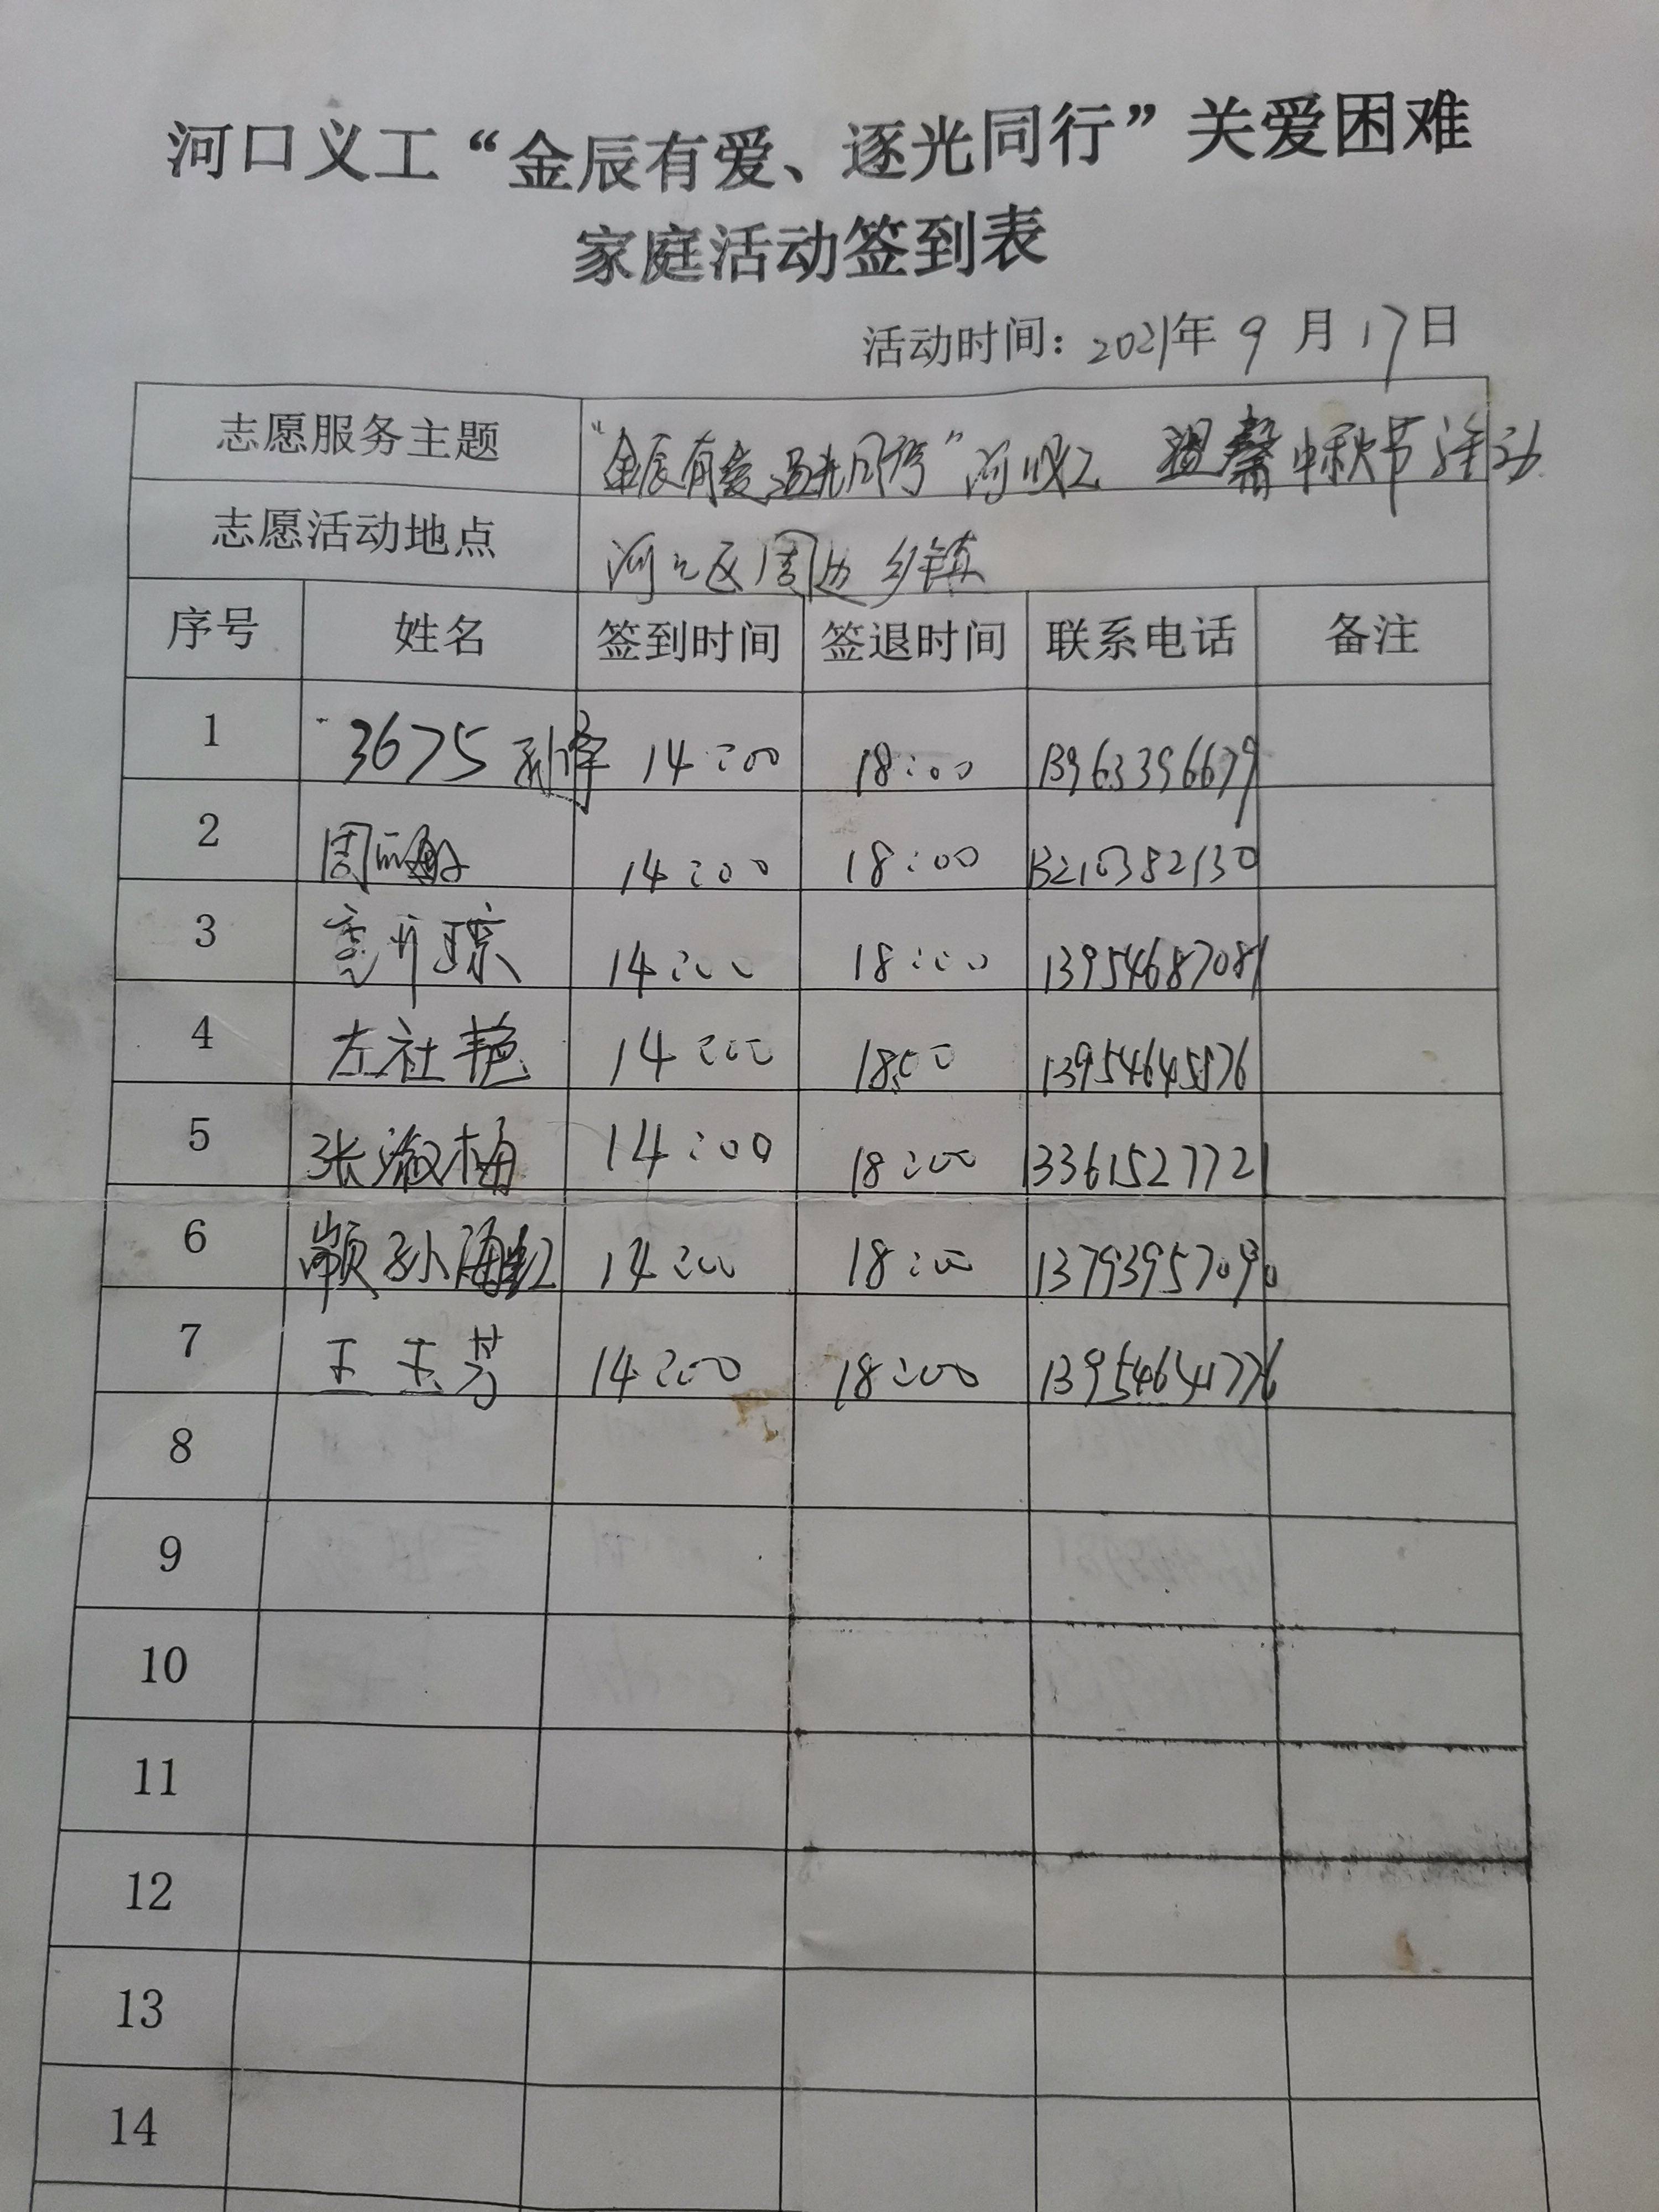 河口义工“金辰有爱、逐光同行”关爱困难
家庭活动签到表
活动时间：2021年 9 月 17日
志愿服务主题 “金辰有爱 逐光同行”河口义工 温馨中秋节活动
志愿活动地点 河口区周边乡镇
序号 姓名 签到时间 签退时间 联系电话 备注
1 3675 14:00 18:00 13963396679
2 周丽敏 14:00 18:00 13210382130
3 14:00 18:00 13954687081
4 左社艳 14:00 18:00 13954645876
5 张淑梅 14:00 18:00 13361527721
6 颛孙海红 14:00 18:00 13793957090
7 王玉芳 14:00 18:00 13954641776
8
9
10
11
12
13
14